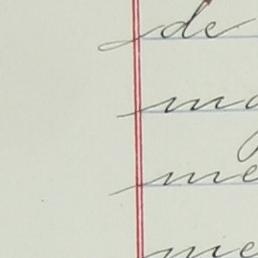 de
ma
me
me